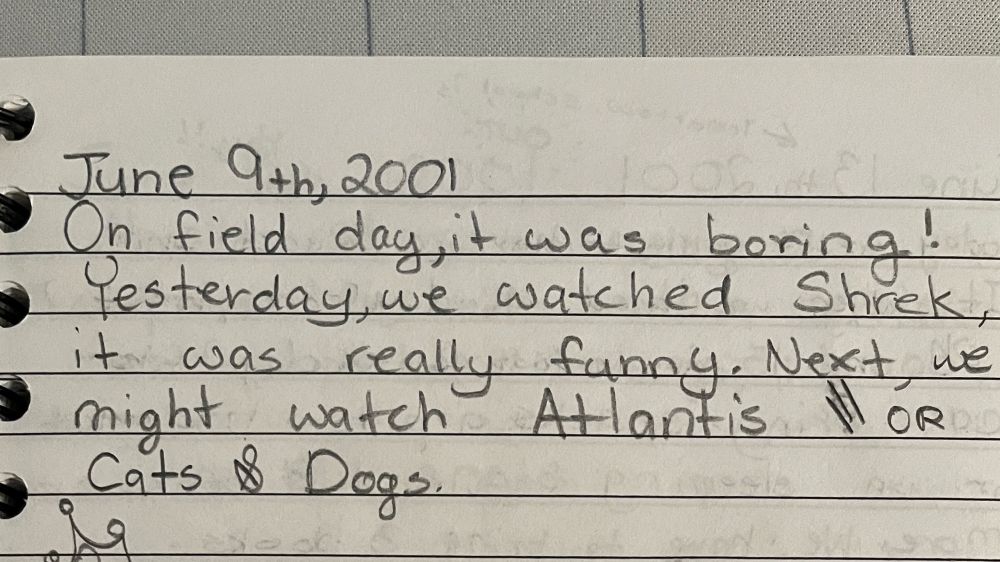 June 9th, 2001
On field day, it was boring!
Yesterday, we watched Shrek,
it was really funny. Next, we
might watch Atlantis OR
Cats & Dogs.